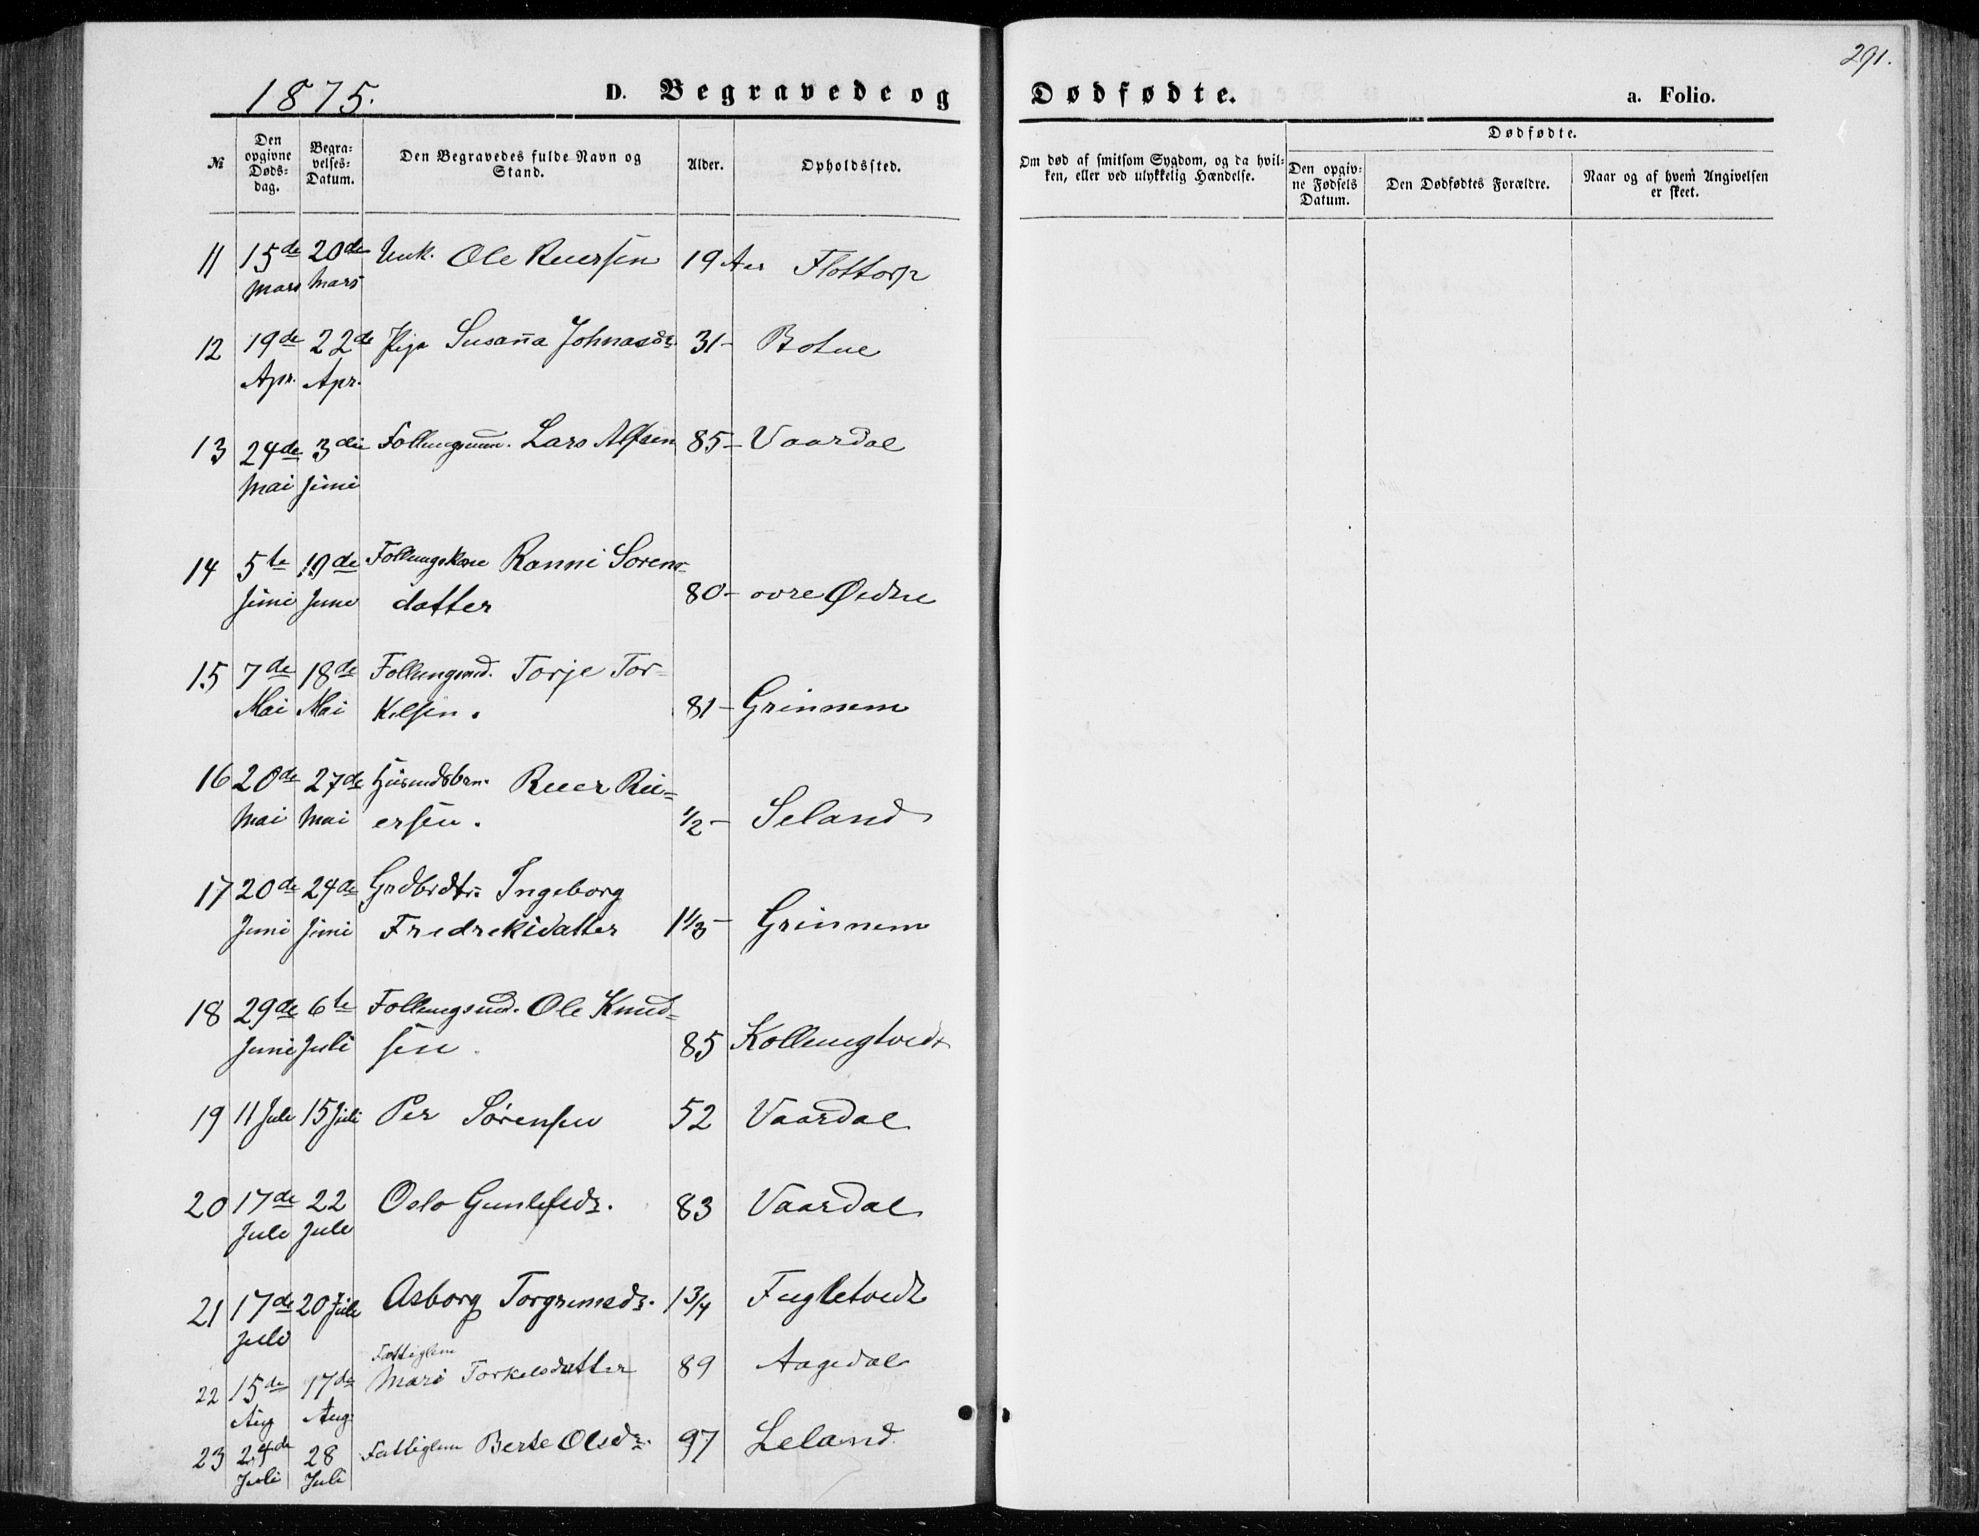 291.
1875. D. Begravede og Dødfødte. a. Folio.
№ Den opgivne Døds-dag. Begra-velses-Datum. Den Begravedes fulde Navn og Stand. Alder. Opholdssted. Om død af smitsom Sygdom, og da hvil-ken, eller ved ulykkelig Hændelse. Dødfødte. Den opgiv-ne Fødsels Datum. Den Dødfødtes Forældre. Naar og af hvem Angivelsen er skeet.
11 15de 20de Unk. Ole Reiersen 19 Aar Flottorp
Mars Mars
12 19de 22de Pige Susanna Johnasdr. 31- Botne
Apr. Apr.
13 24de 3die Lars Alfsen 85- Vaardal
Mai Juni
14 5te 10de Ranni Sorens-
Juni Juni datter 80- ovre Øidne
15 7de 18de Torje Tor-
Mai Mai kelsen. 81- Grinnem
16 20de 27de Reier Rei-
Mai Mai ersen. 1/2- Seland
17 20de 24de Grdbrdtr. Ingeborg
Juni Juni Fredreksdatter 1 1/3- Grinnem
18 29de 6te Ole Knud-
Juni Juli sen. 85 Kollungtvedt
19 11 Juli 15 Juli Per Sørensen 52 Vaardal
20 17de 22 Oslo Gunlefsdr. 83 Vaardal
Juli Juli
21 17de 20 Juli Asborg Torgrimsdr. 1 3/4 Fugletvedt
Juli
Fattiglem
22 15de 17de Mari Torkelsdatter 89 Aagedal
Aug Aug.
23 24de 28 Fattiglem Berte Olsdr. 97 Leland
Juli Juli